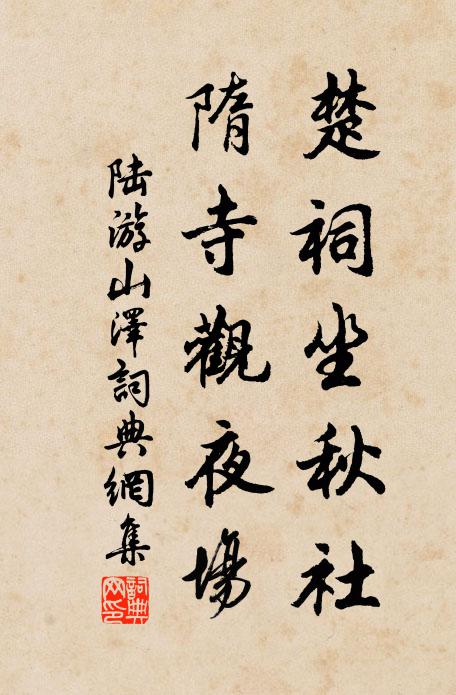 楚祠坐秋社
隋寺觀夜場
陆游山澤詞典網集
詞典网印